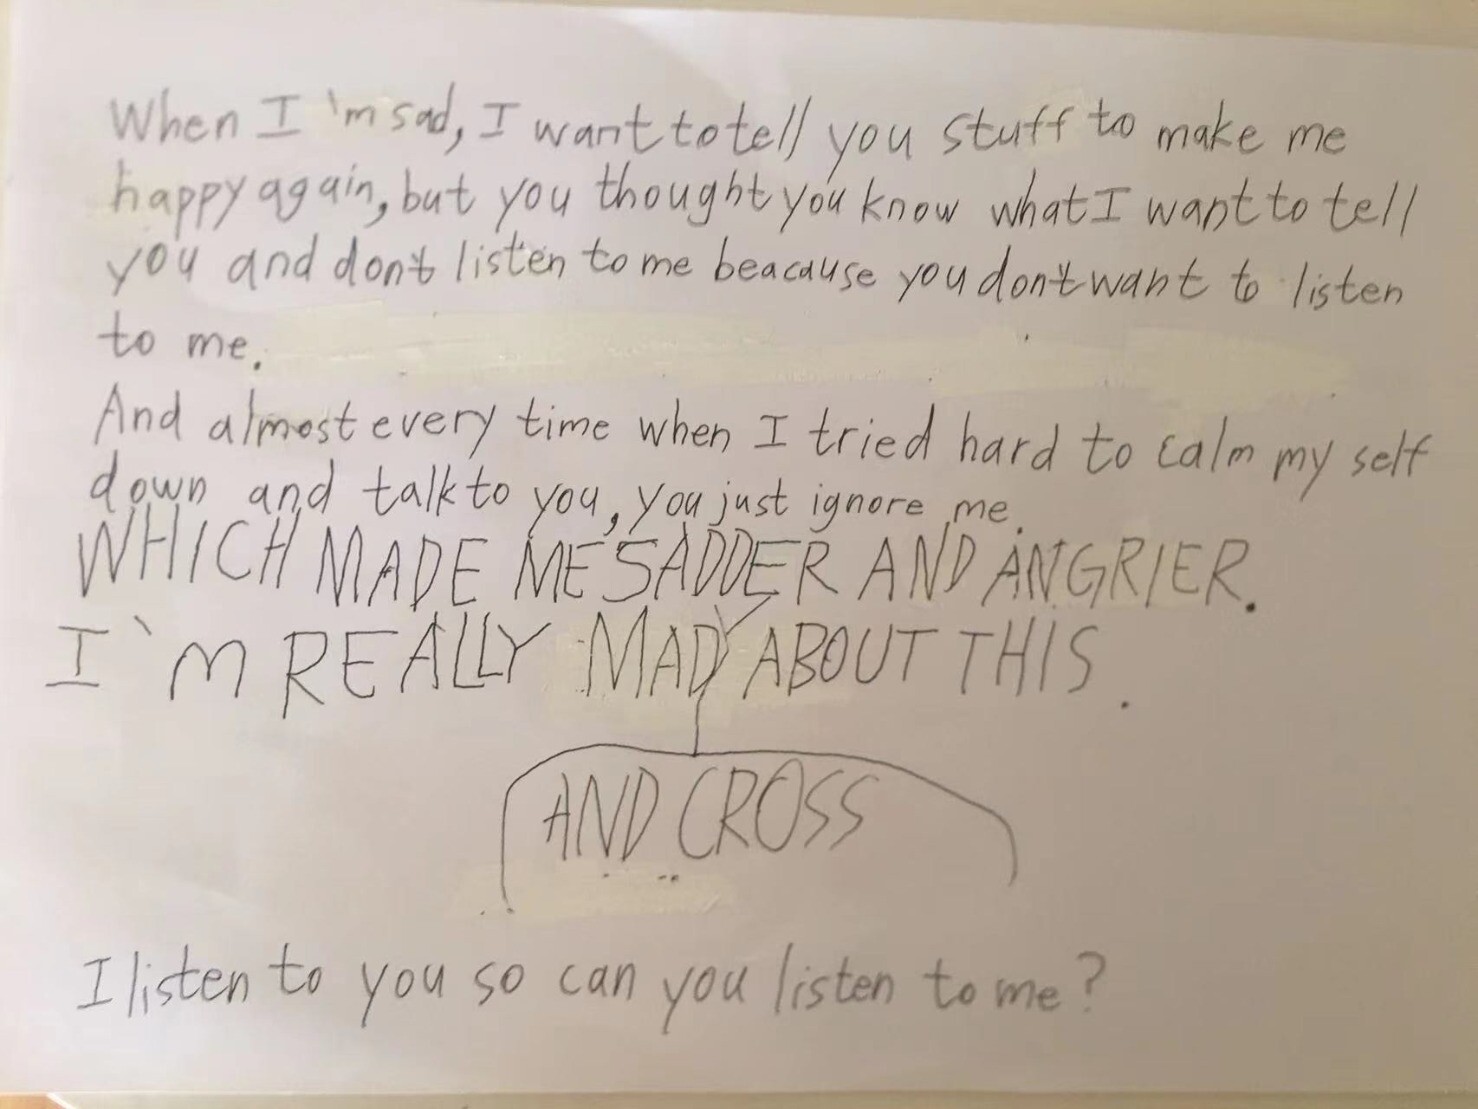 When I'm sad, I want to tell you stuff to make me
happy again, but you thought you know what I want to tell
you and don't listen to me beacause you don't want to listen
to me.
And almost every time when I tried hard to calm my self
down and talk to you, you just ignore me.
WHICH MADE ME SADDER AND ANGRIER.
I'M REALLY MAD ABOUT THIS.
AND CROSS
I listen to you so can you listen to me?